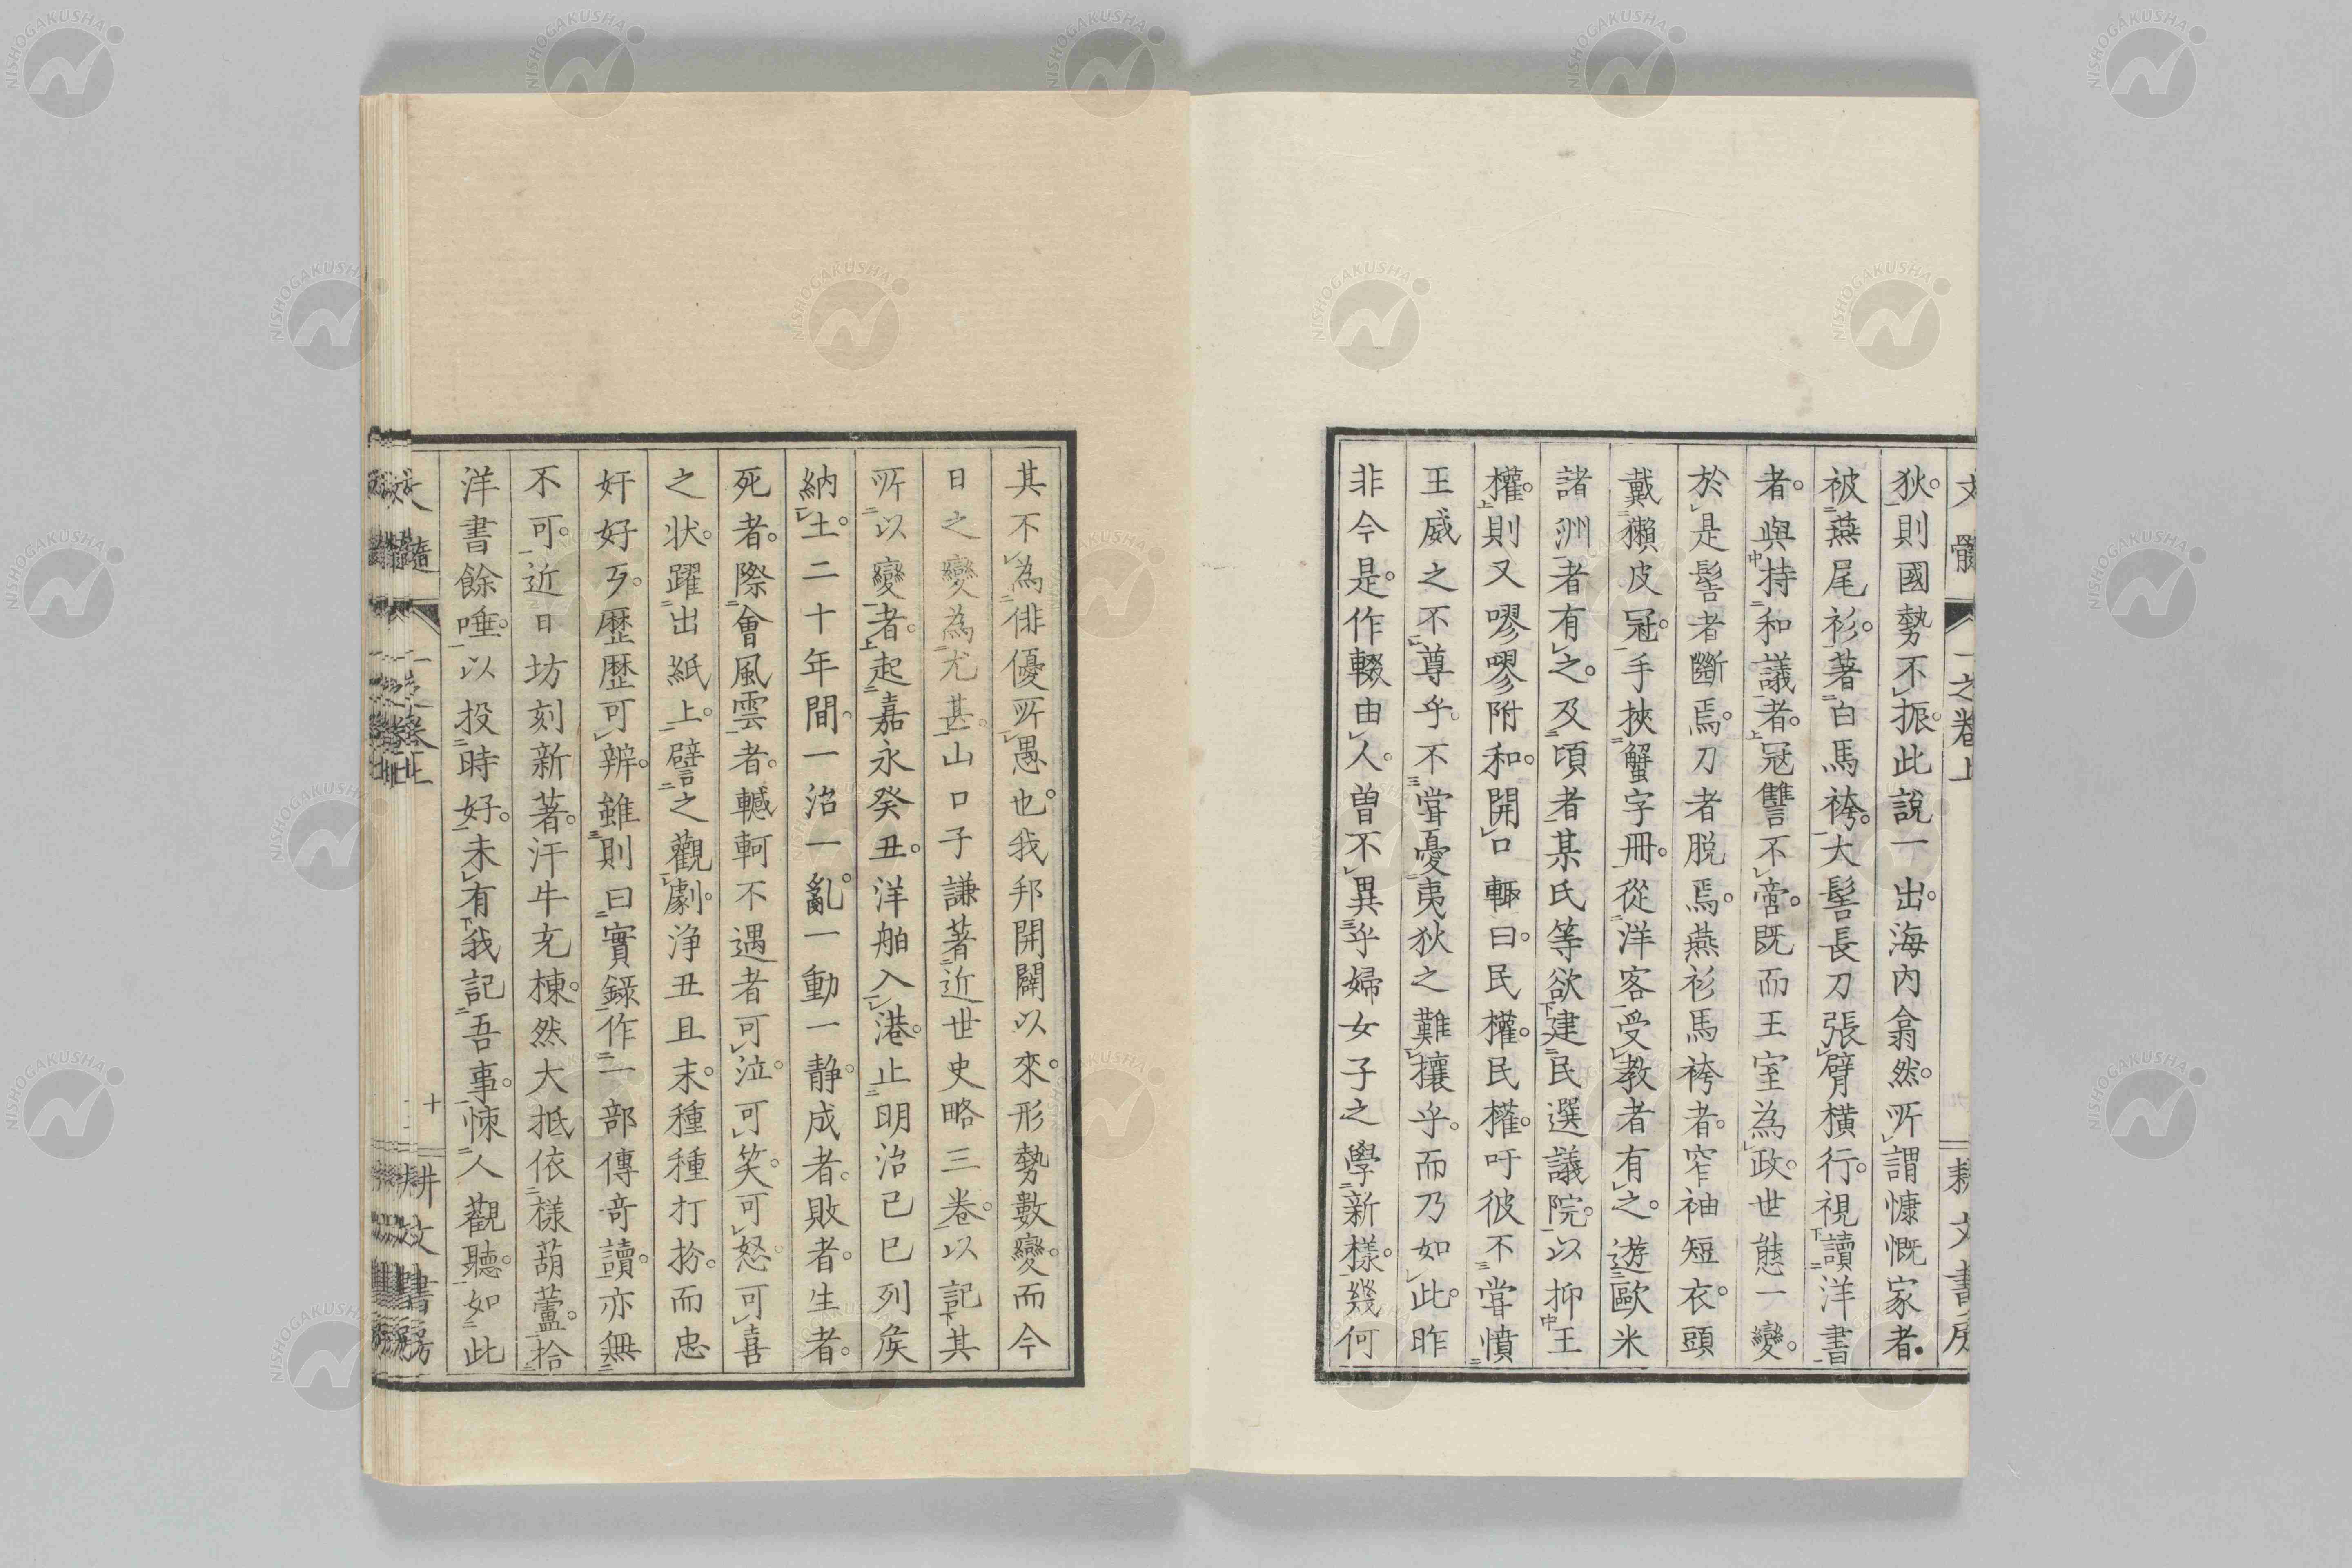 狄。則國勢不振。此說一出。海内翕然。所謂慷慨家者。
被燕尾衫。著白馬袴。大髻長刀。張臂橫行。視讀洋書
者。與持和議者。冠讐不啻。既而王室為政。世態一變。
於是髻者斷焉。刀者脱焉。燕衫馬袴者。窄袖短衣。頭
戴獺皮冠。手挾蟹字冊。從洋客受教者有之。遊歐米
諸洲者有之。及頃者某氏等欲建民選議院。以抑王
權。則又嘐嘐附和。開口輙曰。民權。民權。吁彼不嘗憤
王威之不尊乎。不嘗憂夷狄之難攘乎。而乃如此。昨
非今是。作輟由人。曽不異乎婦女子之學新樣。幾何
其不為俳優所愚也。我邦開闢以來。形勢數變。而今
日之變為尤甚。山口子謙著近世史略三卷。以記其
所以變者。起嘉永癸丑。洋舶入港。止明治己巳列矦
納土。二十年間。一治一亂。一動一静。成者。敗者。生者。
死者。際會風雲者。轗軻不遇者。可泣。可笑。可怒。可喜
之状。躍出紙上。譬之觀劇。浄丑且末。種種打扮。而忠
奸好歹。歴歴可辨。雖則曰實錄。作一部傳奇讀。亦無
不可。近日坊刻新著。汗牛充棟。然大抵依樣葫蘆。拾
洋書餘唾。以投時好。未有我記吾事。悚人觀聽。如此
文 一之卷上 十 耕文書房
NISHOGAKUSHA